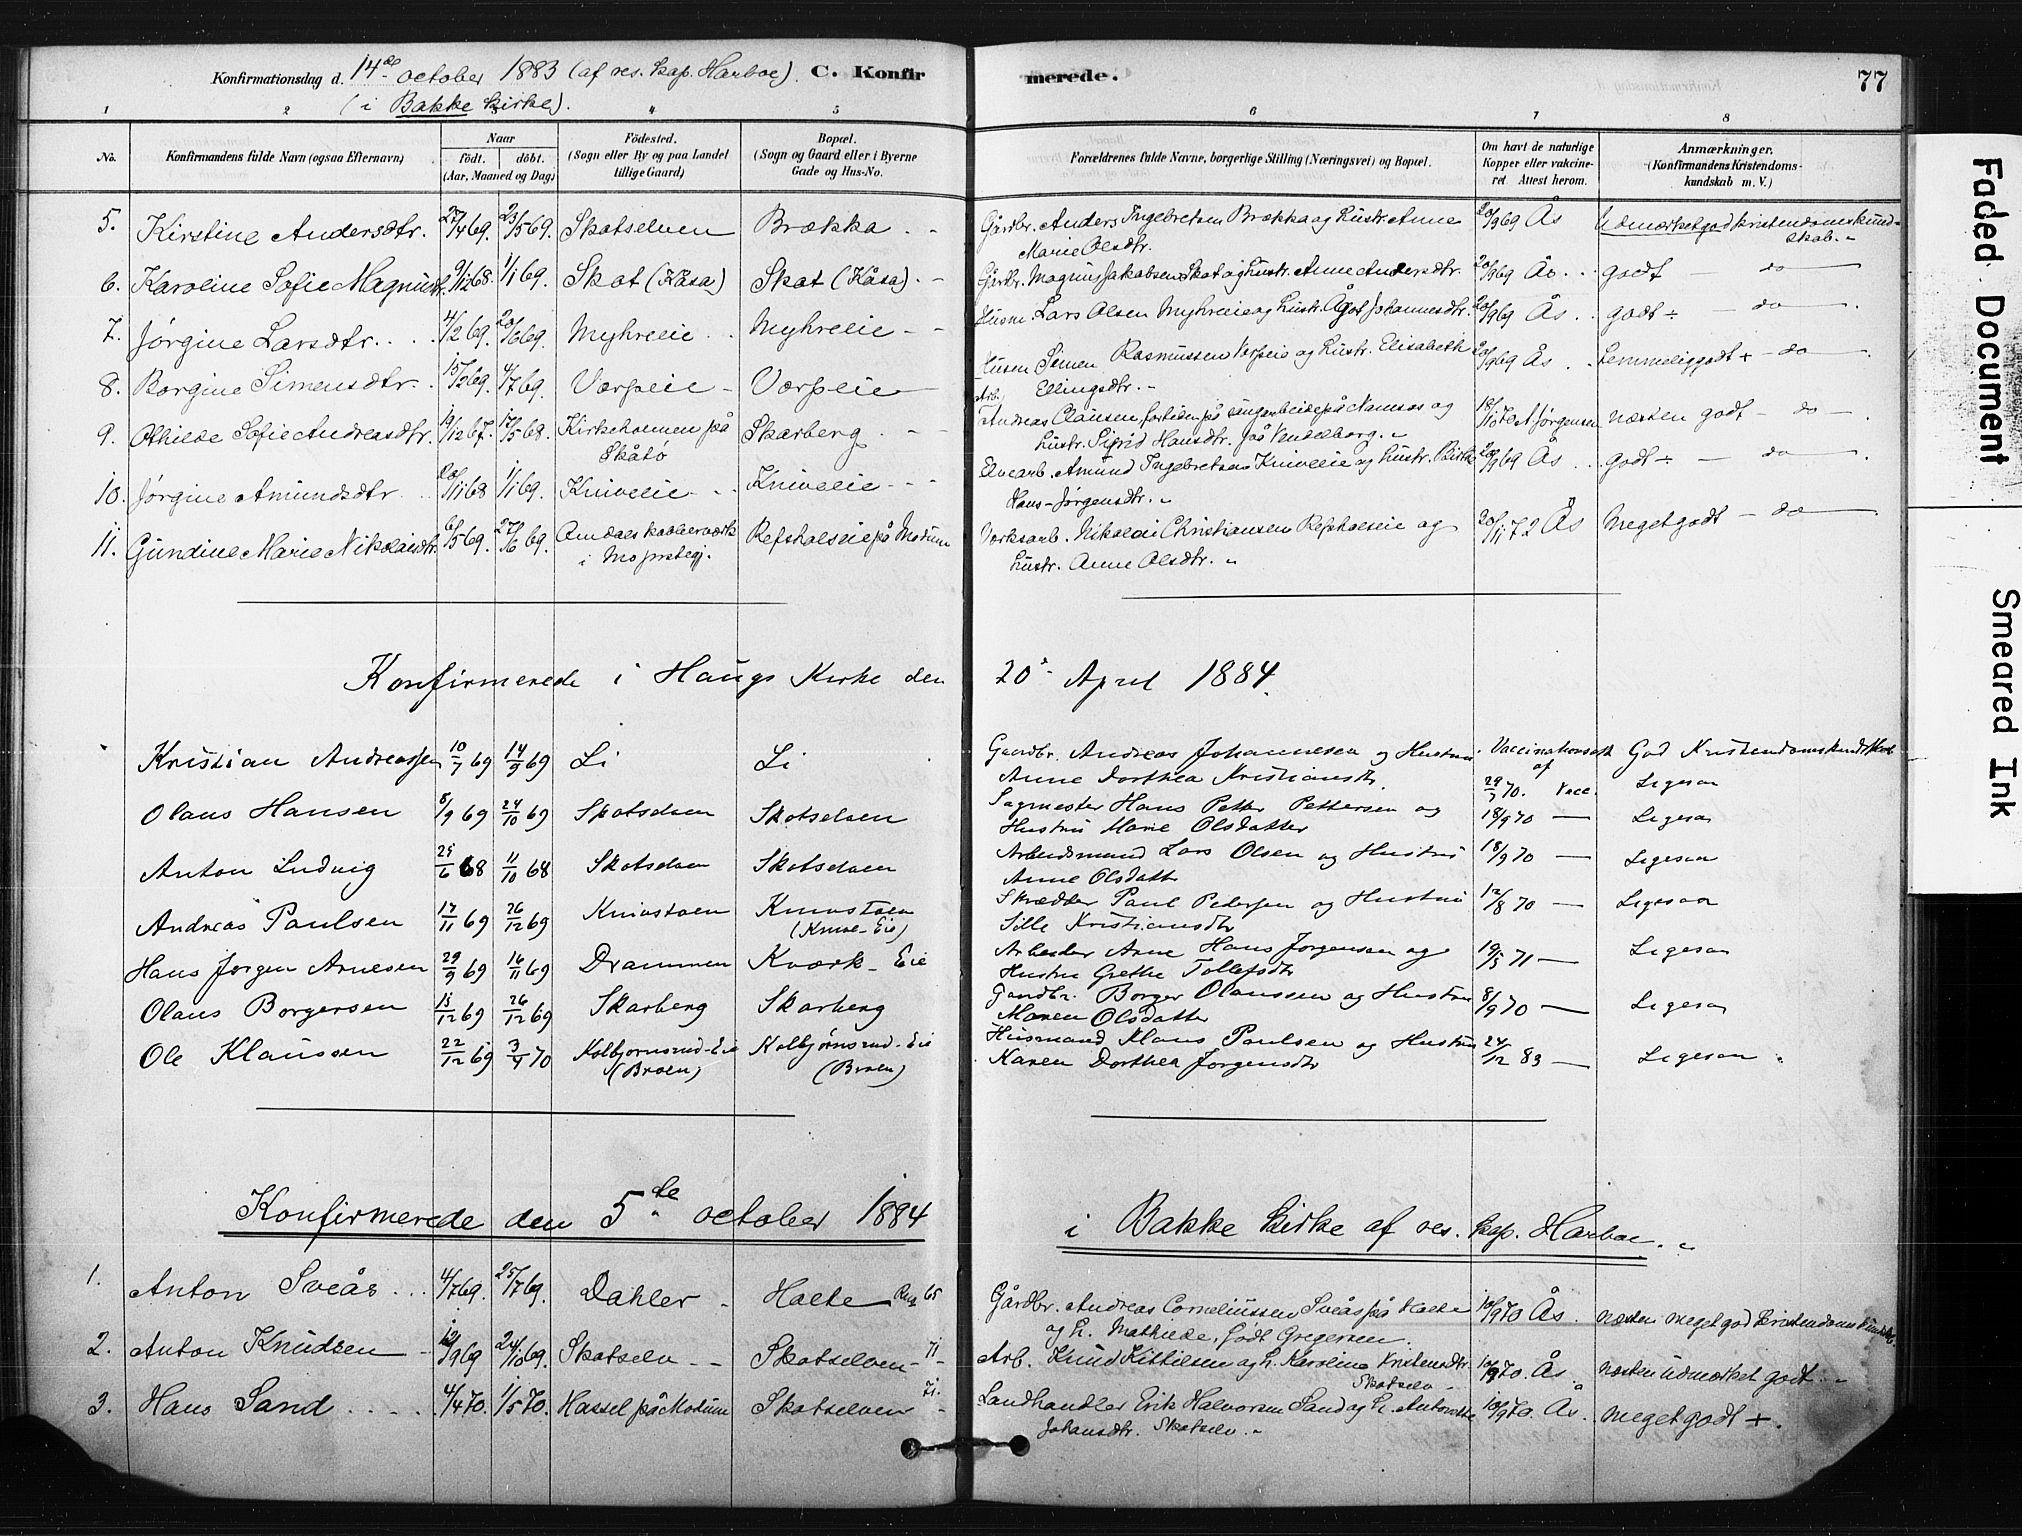 Konfirmationsdag d. 14de october 1883 (af res. kap. Harboe). C. Konfirmerede. 77
(i Bakke kirke).
1 2 3 4 5 6 7 8
No. Konfirmandens fulde Navn (ogsaa Efternavn) Naar født. døbt. (Aar, Maaned og Dag) Fødested. (Sogn eller By og paa Landet tillige Gaard) Bopæl. (Sogn og Gaard eller i Byerne Gade og Hus-No. Forældrenes fulde Navne, borgerlige Stilling (Næringsvei) og Bopæl. Om havt de naturlige Kopper eller vakcineret. Attest herom. Anmærkninger. (Konfirmandens Kristendomskundskab m. V.)
5. Kirstine Andersdtr. 27/4 69. 23/5 69. Skotselven Brækka Gårdbr. Anders Ingebretsen Brækka og hustr. Anne 20/9 69 Ås Udmærket god kristendomskund-
Marie Olsdtr. skab.
6. Karoline Sofie Magnusdtr. 9/12 68. 1/1 69. Skot (Kåsa) Skot (Kåsa). Gårdbr. Magnus Jakobsen Skot og hustr. Anne Andersdtr. 20/9 69 Ås godt do
7. Jørgine Larsdtr. 4/2 69. 20/6 69. Myhreeie Myhreeie Husm. Lars Olsen Myhreeie og hustr. Ågot Johannesdtr. 20/9 69 Ås godt ÷ do
8. Borgine Simensdtr. 15/2 69. 4/7 69. Vorpeie Vorpeie Husm. Simen Rasmussen Vorpeie og hustr. Elisabeth 20/9 69 Ås temmelig godt + do
Ellingsdtr.
9. Othilde Sofie Andreasdtr. 19/12 67. 17/5 68. Kirkeholmen på Skåtø Skarberg Arb. Andreas Clausen for tiden på sagarbeide på Namsos og A. Jørgensen næsten godt do
hustr. Sigrid Hansdtr. på Vendelborg.
10. Jørgine Amundsdtr. 20/11 68 1/1 69. Kniveeie Kniveeie Elvearb. Amund Ingebretsen Kniveeie og hustr. 20/9 69 Ås godt ÷ do
Hans-Jørgensdtr.
11. Gundine Marie Nikolaidtr. 6/5 69. 27/6 69. Omdals kobberværk i Mo prstegj. Refsholseie på Modum Verksarb. Nikolai Christiansen Refsholseie og 20/11 72 Ås Meget godt do
hustr. Anne Olsdtr.
Konfirmerede i Haugs Kirke den 20de April 1884.
Kristian Andreassen 10/7 69 14/9 69 Li Li Gaardbr. Andreas Johannesen og Hustru Vaccinationsatt God Kristendomskundskab
Anne Dorthea Kristiansdtr. af 29/7 70. Vacc. Ligesaa
Olaus Hansen 8/9 69 24/10 69 Skotselven Skotselven Sagmester Hans Petter Pettersen og 18/9 70 — Ligesaa
Hustru Marie Olsdatter
Anton Ludvig 25/6 68 11/10 68 Skotselven Skotselven Arbeidsmand Lars Olsen og Hustru 18/9 70 — Ligesaa
Anne Olsdatter
Andreas Paulsen 17/11 69 26/12 69 Knivstøen Knivstøen (Knive-Eie) Skrædder Paul Pedersen og Hustru 12/8 70 — Ligesaa
Sille Kristiansdtr
Hans Jørgen Arnesen 29/9 69 16/11 69 Drammen Kværk-Eie Arbeider Arne Hans Jørgensen og 19/5 71 — Ligesaa
Hustru Grethe Tollefsdtr
Olaus Borgersen 15/12 69 26/12 69 Skarberg Skarberg Gaardbr. Borger Olaussen og Hustru 8/9 70 — Ligesaa
Maren Olsdatter
Ole Klaussen 22/12 69 3/4 70 Kolbjørnsrud-Eie (Broen) Kolbjørnsrud-Eie (Broen) Husmand Klaus Paulsen og Hustru 24/12 83 — Ligesaa
Karen Dorthea Jørgensdtr
Konfirmerede den 5te october 1884 i Bakke kirke af res. kap. Harboe.
1. Anton Sveås 4/7 69. 25/7 69. Dahler Holte Reg 65 Gårdbr. Andreas Corneliussen Sveås på Holte 10/9 70 Ås. næsten meget god kristendomskundskb.
og h. Mathilde, født Gregersen.
2. Anton Knudsen 12/9 69 24/10 69. Skotselv Skotselven 71 Arb. Knud Kittilsen og h. Karoline Kristensdtr. 10/9 70. Ås. næsten udmærket godt.
Skotselv
3. Hans Sand 4/4 70. 1/5 70. Hassel på Modum Skotselven 71. Landhandler Erik Halvorsen Sand og h. Antonette 10/9 70. Ås meget godt +.
Johansdtr. Skotselv
Faded Document
Smeared Ink